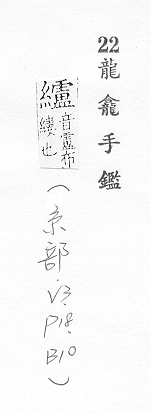 22龍龕手鑑
纑音盧布縷也
(糸部.V3.P18.B10)